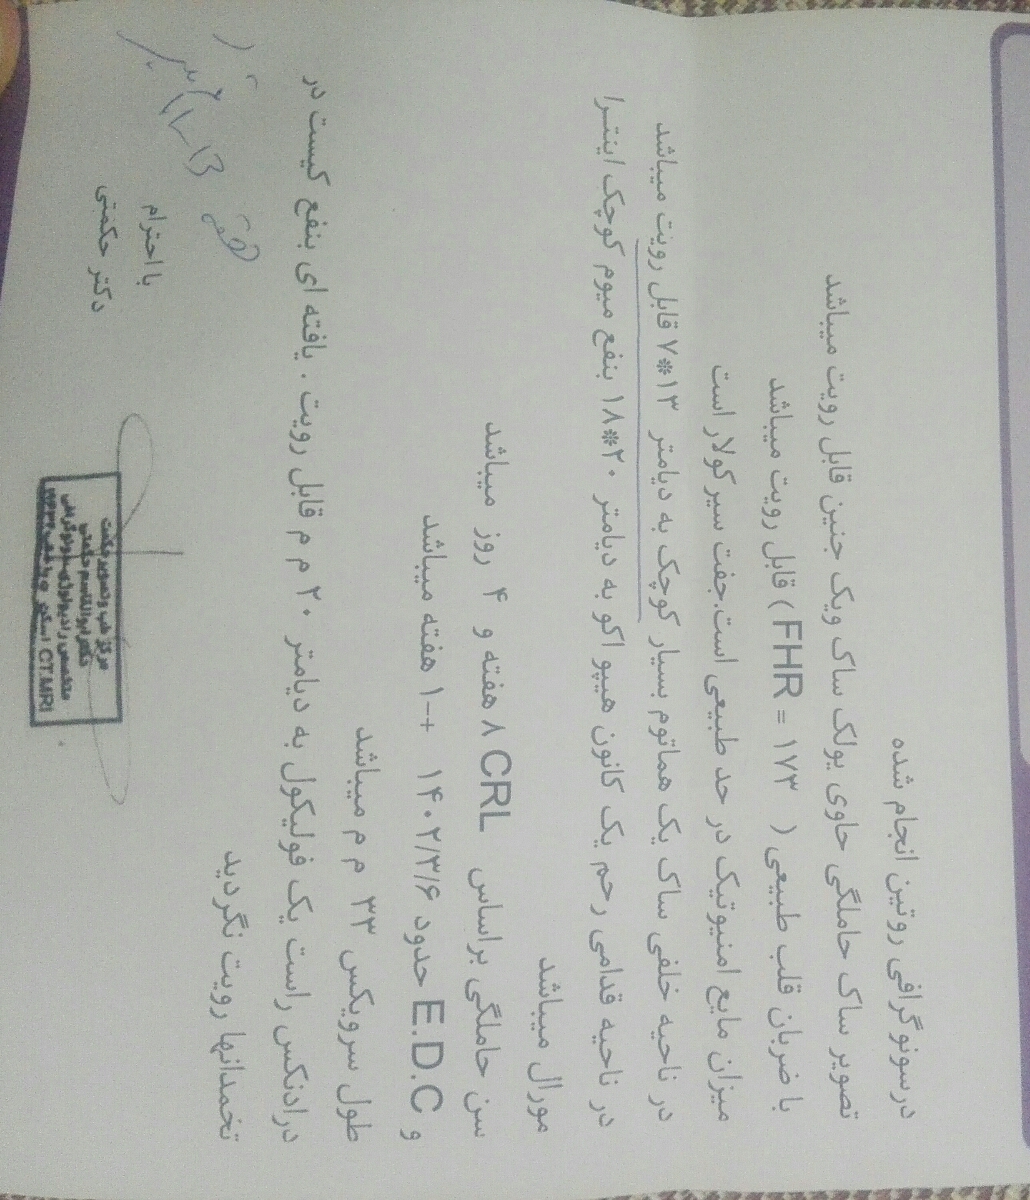 درسونوگرافی روتین انجام شده
تصویر ساک حاملگی حاوی یولک ساک ویک جنین قابل رویت میباشد
با ضربان قلب طبیعی ( FHR = ۱۷۳ ) قابل رویت میباشد
میزان مایع امنیوتیک در حد طبیعی است.جفت سیرکولار است
در ناحیه خلفی ساک یک هماتوم بسیار کوچک به دیامتر ۱۳*۷ قابل رویت میباشد
در ناحیه قدامی رحم یک کانون هیپو اکو به دیامتر ۲۰*۱۸ بنفع میوم کوچک اینترا
مورال میباشد
سن حاملگی براساس CRL ۸ هفته و ۴ روز میباشد
و E.D.C حدود ۱۴۰۲/۳/۶ +-۱ هفته میباشد
طول سرویکس ۳۳ م م میباشد
درادنکس راست یک فولیکول به دیامتر ۲۰ م م قابل رویت . یافته ای بنفع کیست در
تخمدانها رویت نگردید
با احترام
دکتر حکمتی